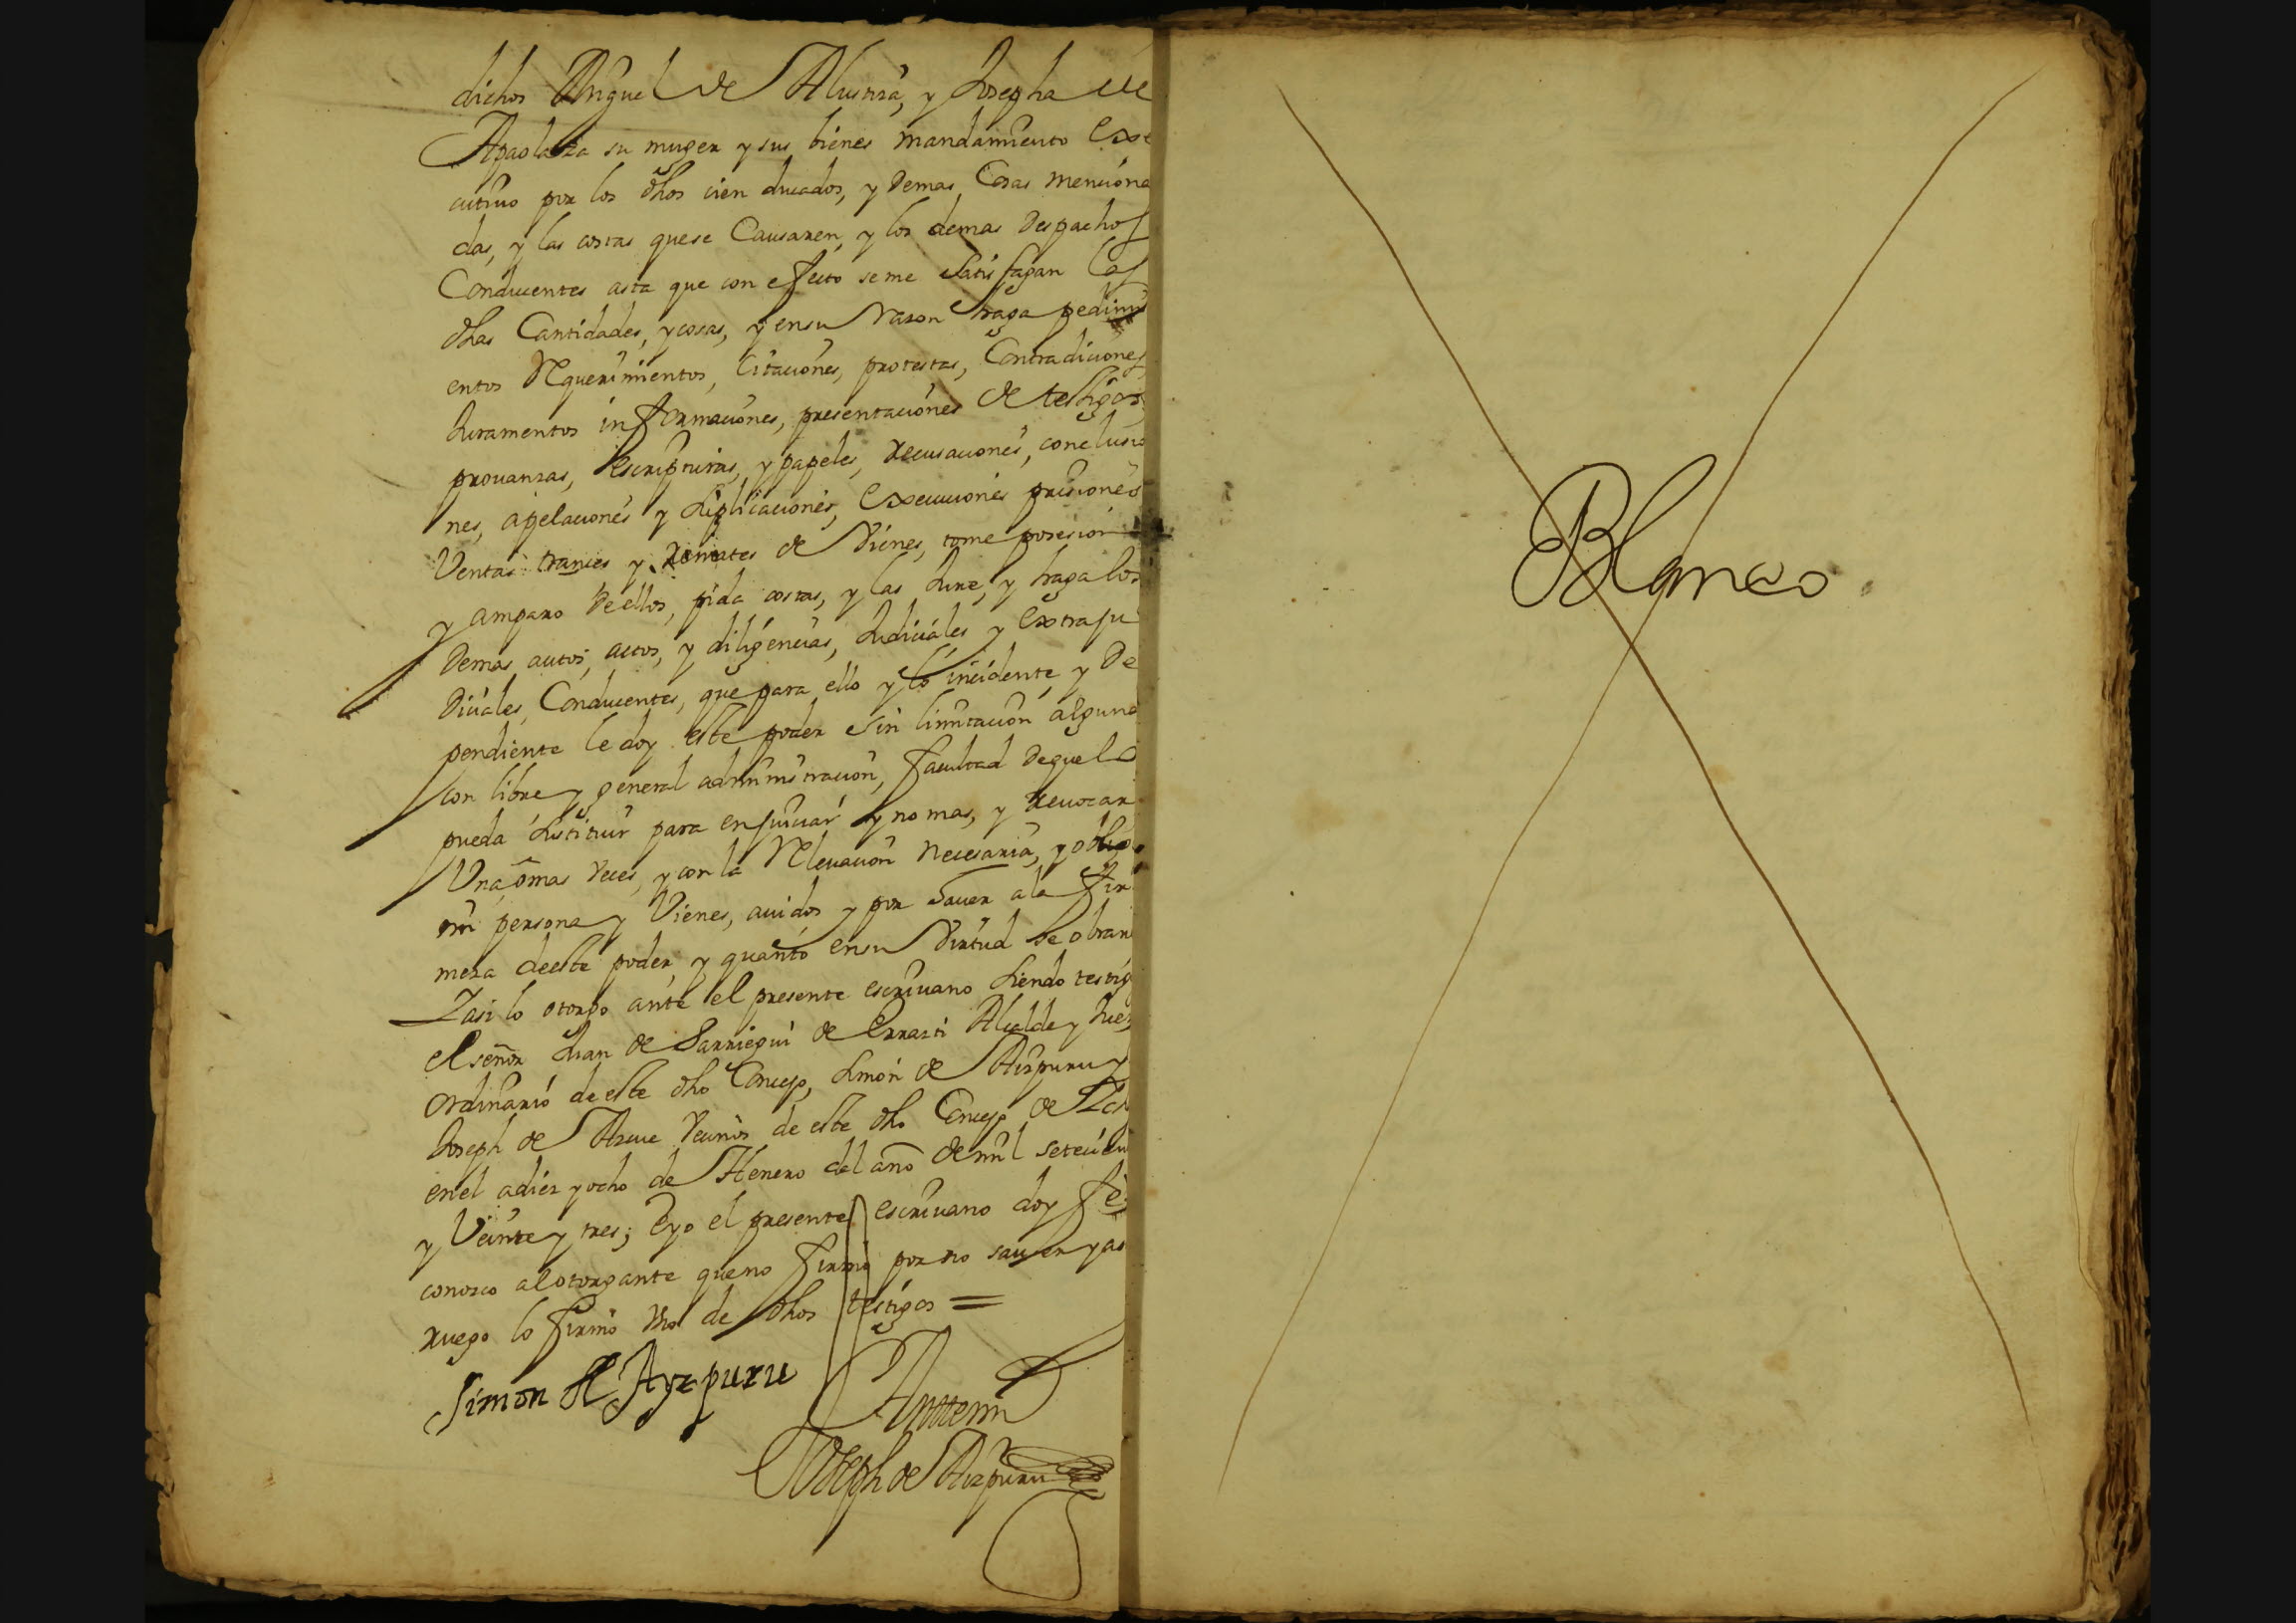 dichos Miguel de Alunza, y Josepha de
Apaolaza su muger y sus bienes mandamiento exe
cutiuo por los dhos cien ducados, y demas Cosas menciona
das, y las costas que se Causaren, y los demas Despachos
Conducentes asta que con efecto se me satisfagan las
dhas Cantidades, y cosas, y en su razon haga pedimi
entos Requerimientos, Citaciones, protestas, Contradiciones,
Juramentos informaciones, presentaciones de testigos,
prouanzas, escripturas, y papeles, recusaciones, conclusio
nes, apelaciones y suplicaciones, Execuciones prisiones
Ventas trances y remates de Vienes, tome posesion
y amparo de ellos, pida costas, y las Jure, y haga los
Demas autos, actos, y diligencias, Judiciales y Extraju
Diciales, Conducentes, que para ello y lo incidente y De
pendiente le doy este poder sin limitacion alguna
con libre y general administracion, facultad de que lo
pueda sustituir para enjuiciar y no mas, y reuocar
Una o mas veces, y con la Releuacion necesaria, y obligo
mi persona y Vienes, auidos y por hauer a la fir
meza de este poder, y quanto en su Virtud se obrare
Y asi lo otorgo ante el presente escriuano siendo testigos
el señor Juan de Sarriegui de Errazti Alcalde y Juez
Ordinario de este dho Concejo, Simon de Aizpuru y
Joseph de Azcue vecinos de este dho Concejo de
en el a diez y ocho de Henero del año de mil setecien
y Veinte y tres; E yo el presente escriuano doy fe,
conozco al otorgante que no firmo por no sauer y a su
ruego lo firmo vno de dhos testigos =
Simon de Ayzpuru
Ante mi
Joseph de Aizpuru
Blanco